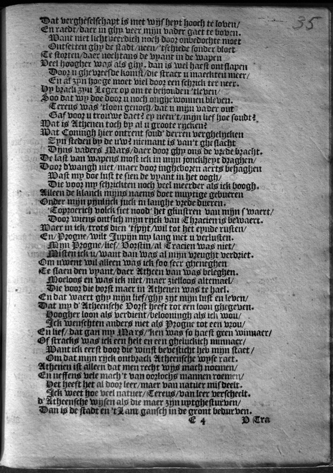 35
Dat vergheselschapt is met wijs heyt hooch te loven/
En raedt/ daer in ghy veer mijn vader gaet te boven.
Want niet licht veerdich noch door onbedochte moet
Ontsetten ghy de stadt/ neen/ 't schiede sonder bloet
Te storten/ daer nochtans de vyant in de wapen
Veel hoogher was als ghy, dan is viel haest ontslapen
Door u gheweefde komst/ die
En al zijn hooge moet viel door een schrick ter neer.
Hy brack zijn Leger op om te behouden 't leven/
Soo dat wy doe door u noch onghe wonnen bleven.
Tereus was 't loon ghenoch/ dat u mijn vader
Gaf voor u trouwe daet? ey neen 't/ mijn lief hoe soudt?
Wat is Athenen toch by al u groote rijcken?
Wat Coningh hier ontrent sonder verghelijcken
Zijn steden by de uwe? niemant is van 't ghe slacht
Dijns vaders Mars/ daer door ghy ons de vrede bracht.
De last van wapens most ick in mijn jonckheyt draghen/
Door dwangh niet/ maer door inghebooren aerts behaghen
Wast my doe lust te sien de vyant in 't oogh/
Die voor my schrickten noch veel meerder als ick boogh.
Alleen de klanck mijns naems doet muytige gedueren
Onder mijn rijck in langhe vrede dueren.
Coynerich volck siet nood' het glinstren van mijn swaert/
Door wiens ontsich mijn rijck van Thracien is bewaert.
Waer in ick/ trots dien 't spijt/ wil tot het eynde rusten/
En/ Progne/ wilt Jupijn my lang met u verlusten.
Mijn Progne/ lief/ Vorstin/ al Tracien was niet/
Misten ick u/ want dan was al mijn vreught verdriet.
Om u/ went vol alleen was ick soo seer gheneghen
Te slaen den vyant/ daer Atheen van was beleghen.
Moeloos en was ick niet/ maer heeloos altemael/
Die voor die borst maer in Athenen was te hael.
En dat waert ghy mijn lief/ ghy zijt mijn lust en leven/
Dat my d' Atheensche Vorst heeft tot een loon ghegeven.
Hoogher loon als verdient/ belooningh als ick wou/
Ick wenschten anders niet als Progne tot een vrou/
En lief/ dat gan my Mars/ hem was so haest geen winnaer/
Of stracks was ick een helt en een gheluckich minnaer/
Want ick eerst door die winst bevesticht heb mijn staet/
Om dat mijn rijck ontbrack Atheensche wyse raet.
Athenen ist alleen dat men recht wijs mach noemen/
En neffens vele mach 't van oorlochs mannen roemen/
Het heeft het al door leer/ maer van natuer misdeelt.
Ick weet hoe veel natuer/ Tereus/ van leer verscheelt.
d'Atheensche wijsen als die maer zijn uytghestorven/
Dan is de stadt en 't Lant gansch in de gront bedurven.
E 4 D Tra